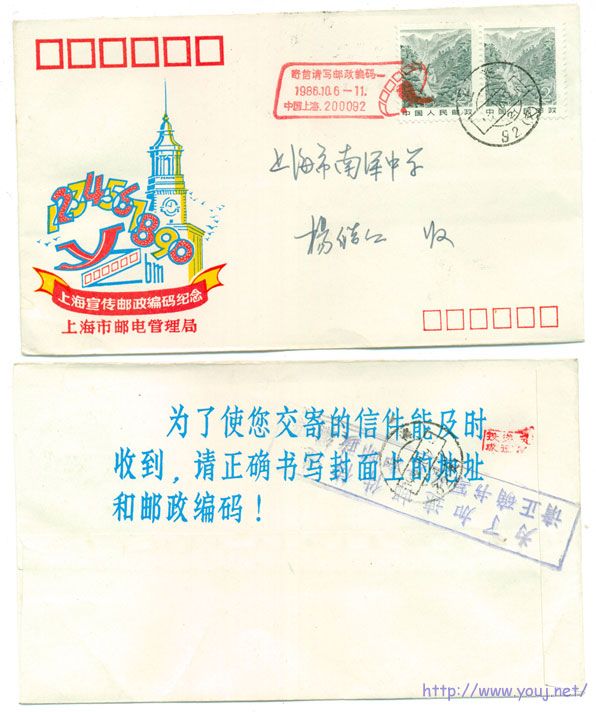 寄信请写邮政编码
1986.10.6—11.
中国上海.200092
中国人民邮政
中国人民邮政
92
上海市南洋中学
杨
仁 收
1234567890
y
bm
上海宣传邮政编码纪念
上海市邮电管理局
为了使您交寄的信件能及时
收到，请正确书写封面上的地址
和邮政编码！
为了加速
请正确书写
http://www.youj.net/